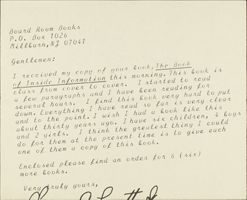 Board Room Books
P.O. Box 1026
Millburn, NJ 07041
Gentlemen:
I received my copy of your book, The Book
of Inside Information this morning. This book is
class from cover to cover. I started to read
a few paragraphs and I have been reading for
several hours. I find this book very hard to put
down. Everything I have read so far is very clear
and to the point. I wish I had a book like this
about thirty years ago. I have six children, 4 boys
and 2 girls. I think the greatest thing I could
do for them at the present time is to give each
one of them a copy of this book.
Enclosed please find an order for 6 (six)
more books.
Very truly yours,